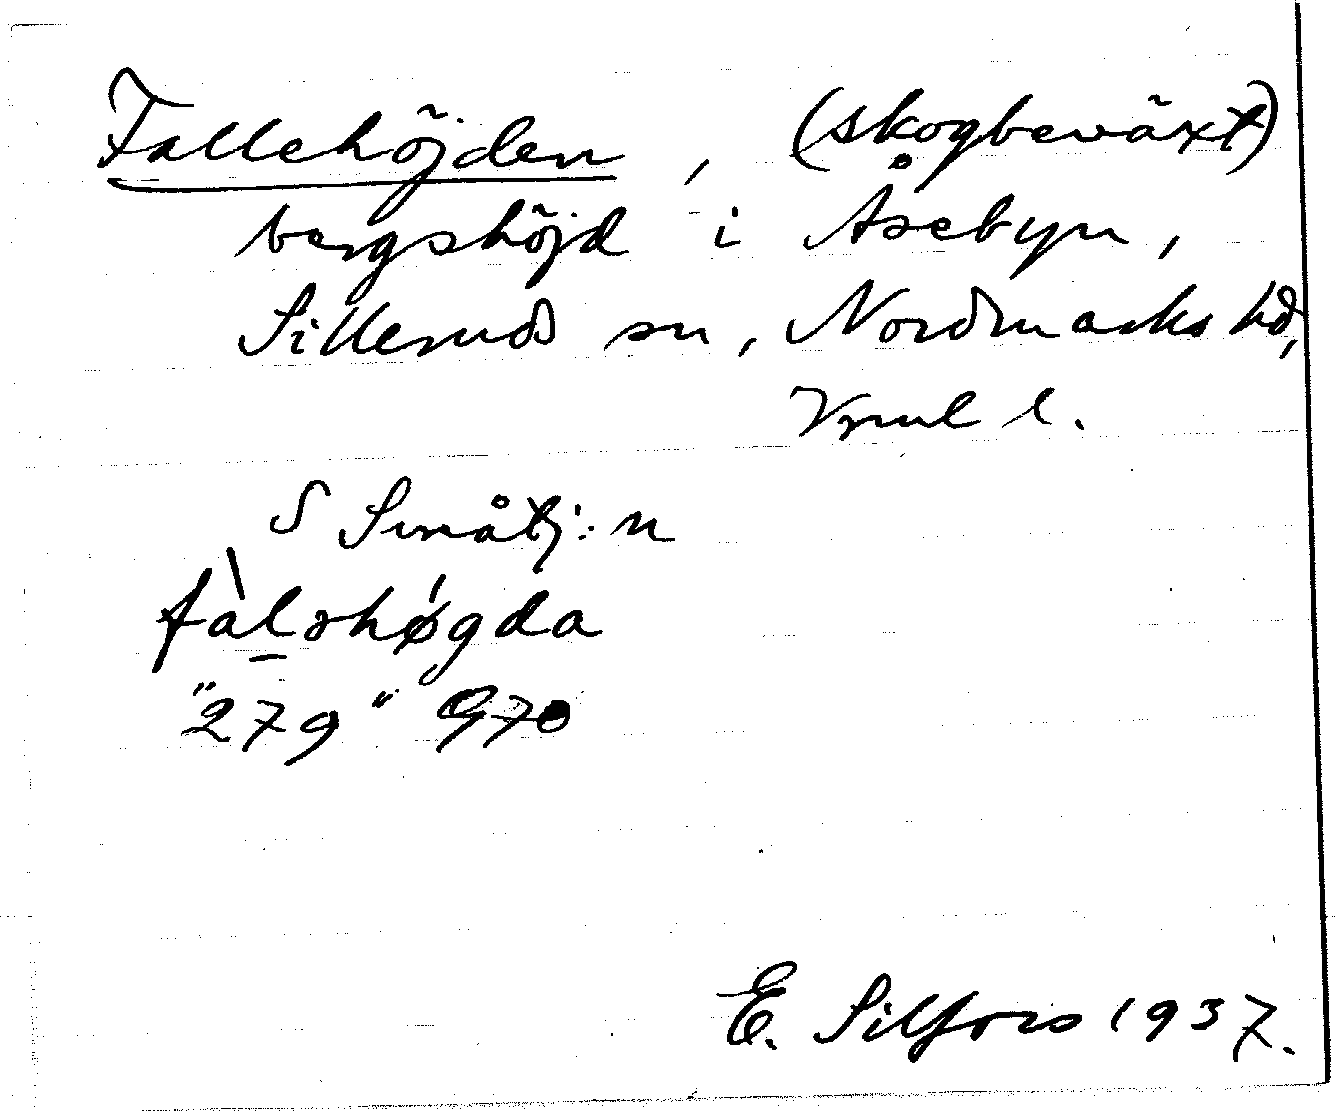 Fallehöjden, (skogbeväxt)
bergshöjd i Åsebyn,
Sillerud sn, Nordmarks hd,
Vrml l.
S Småtj:n
fàlə́høgda
"279" G70
E. Silfors 1937.